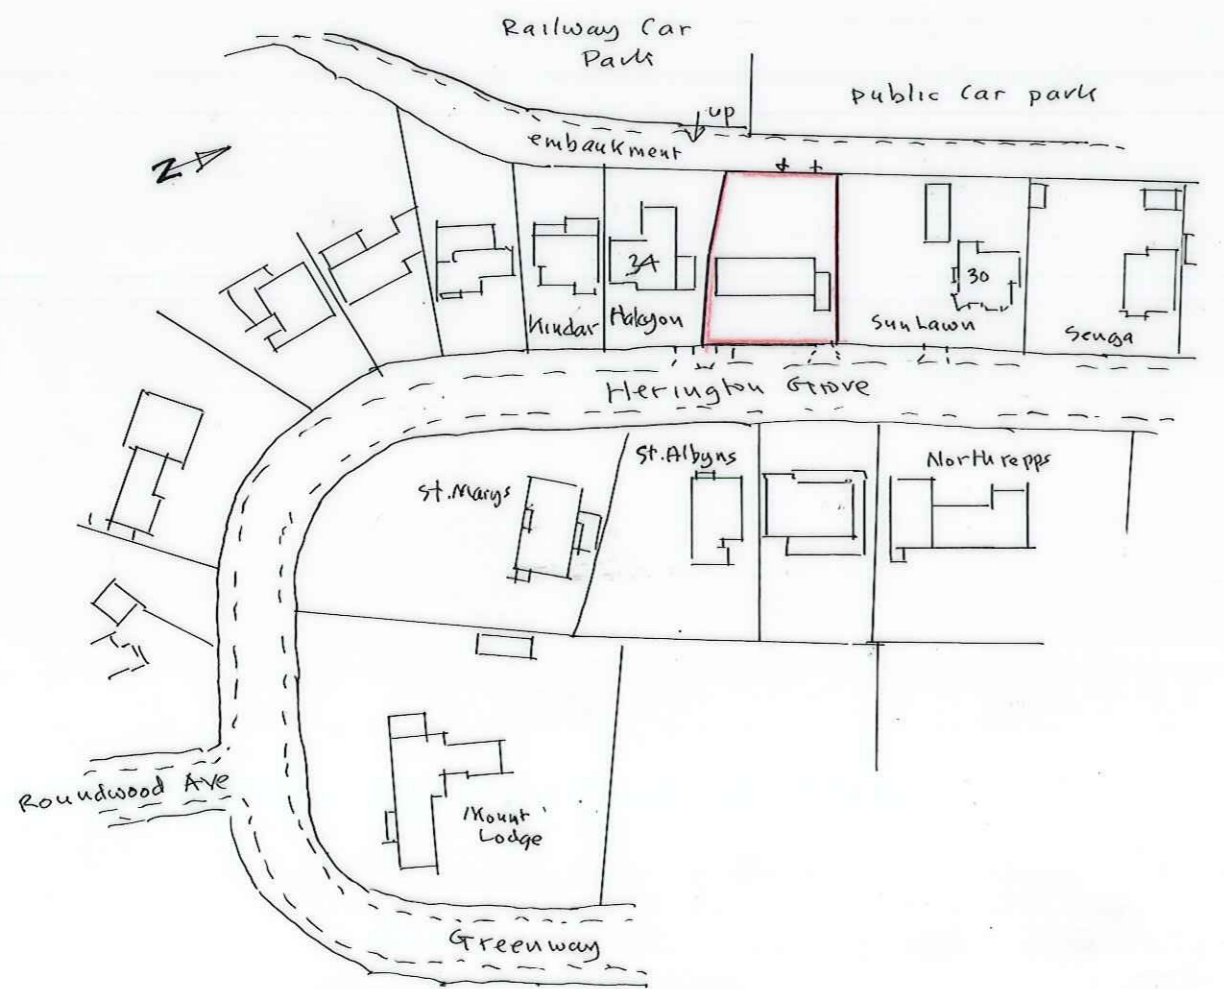 Railway Car
Park
up
public Car park
embankment
N
34
30
Kindar
Halcyon
SunLawn
Senga
Herington Grove
St. Albyns
Northrepps
St. Marys
Roundwood Ave
'Mount'
Lodge
Greenway